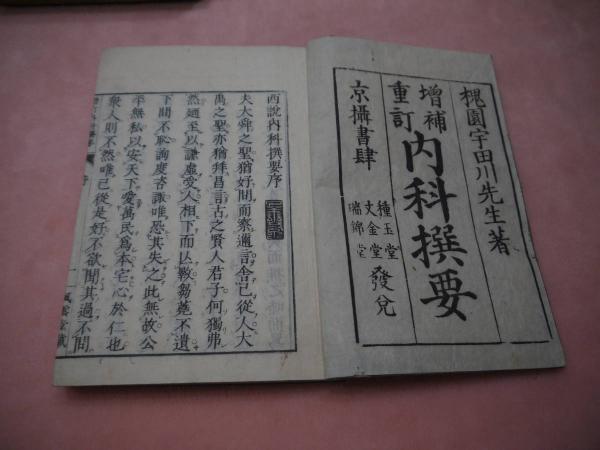 槐園宇田川先生著
増補
重訂
内科撰要
京攝書肆
種玉堂
文金堂
瑞錦堂
發兌
西說內科撰要序
夫大舜之聖猶好問而察邇言舍己從人大
禹之聖亦猶拜昌言古之賢人君子何獨弗
然廼至以謙虛受人相下而亾敖芻蕘不遺
下問不恥詢度咨諏唯恐其失之此無故公
平無私以安天下愛萬民爲本宅心於仁也
衆人則不然唯己從是好不欲聞其過不問